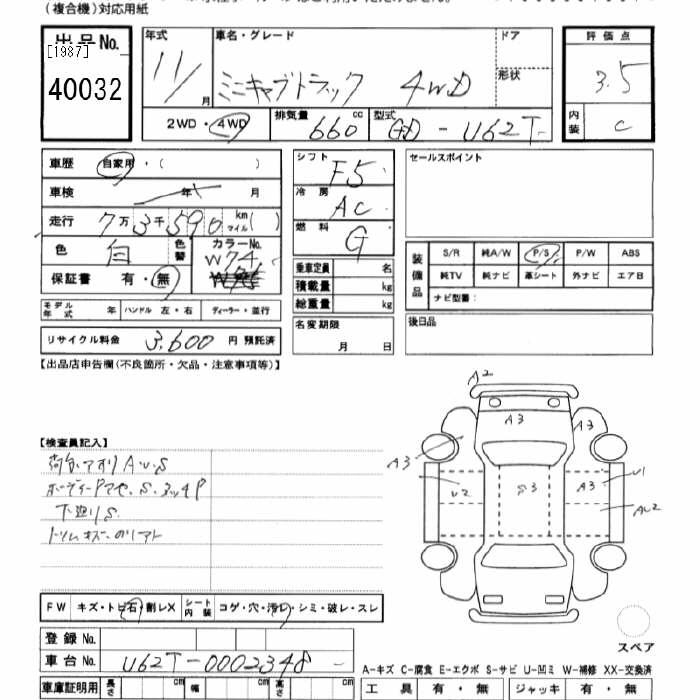 (複合機)対応用紙
出品No.
[1987]
40032
年式
11/
月
車名・グレード
ミニキャブトラック 4WD
ドア
形状
評価点
3.5
内装
C
2WD・4WD
排気量
660
cc
型式
GD - U62T
車歴 自家用・( )
車検 年 月
走行 7万3千590 km マイル( )
色 白 色替 カラーNo. W74
保証書 有・無
モデル年式 年 ハンドル 左・右 ディーラー・並行
リサイクル料金 3,600 円 預託済
シフト F5
冷房 AC
燃料 G
乗車定員 名
積載量 kg
総重量 kg
名変期限
月 日
セールスポイント
装備品
S/R 純A/W P/S P/W ABS
純TV 純ナビ 革シート 外ナビ エアB
ナビ型番:
後日品
【出品店申告欄(不良箇所・欠品・注意事項等)】
【検査員記入】
荷台、アオリA.U.S
下廻りS
A2
A3
A3
A3
A3
U2
S3
A3
U1
AU2
スペア
FW キズ・トビ石・割レX シート内装 コゲ・穴・汚レ・シミ・破レ・スレ
登録No.
車台No. U62T-0002348
A-キズ C-腐食 E-エクボ S-サビ U-凹ミ W-補修 XX-交換済
車庫証明用 長さ cm 幅 cm 高さ cm
工具 有・無 ジャッキ 有・無